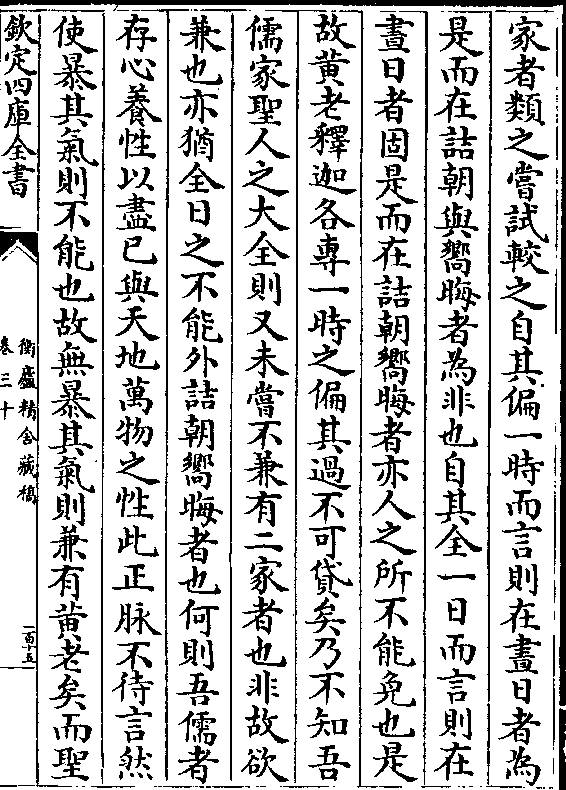 家者類之嘗試較之自其偏一時而言則在晝日者為
是而在詰朝與嚮晦者為非也自其全一日而言則在
晝日者固是而在詰朝嚮晦者亦人之所不能免也是
故黄老釋迦各專一時之偏其過不可貸矣乃不知吾
儒家聖人之大全則又未嘗不兼有二家者也非故欲
兼也亦猶全日之不能外詰朝嚮晦者也何則吾儒者
存心養性以盡已與天地萬物之性此正脉不待言然
使暴其氣則不能也故無暴其氣則兼有黄老矣而聖
欽定四庫全書
衡廬精舍藏稿
卷三十
一百十五